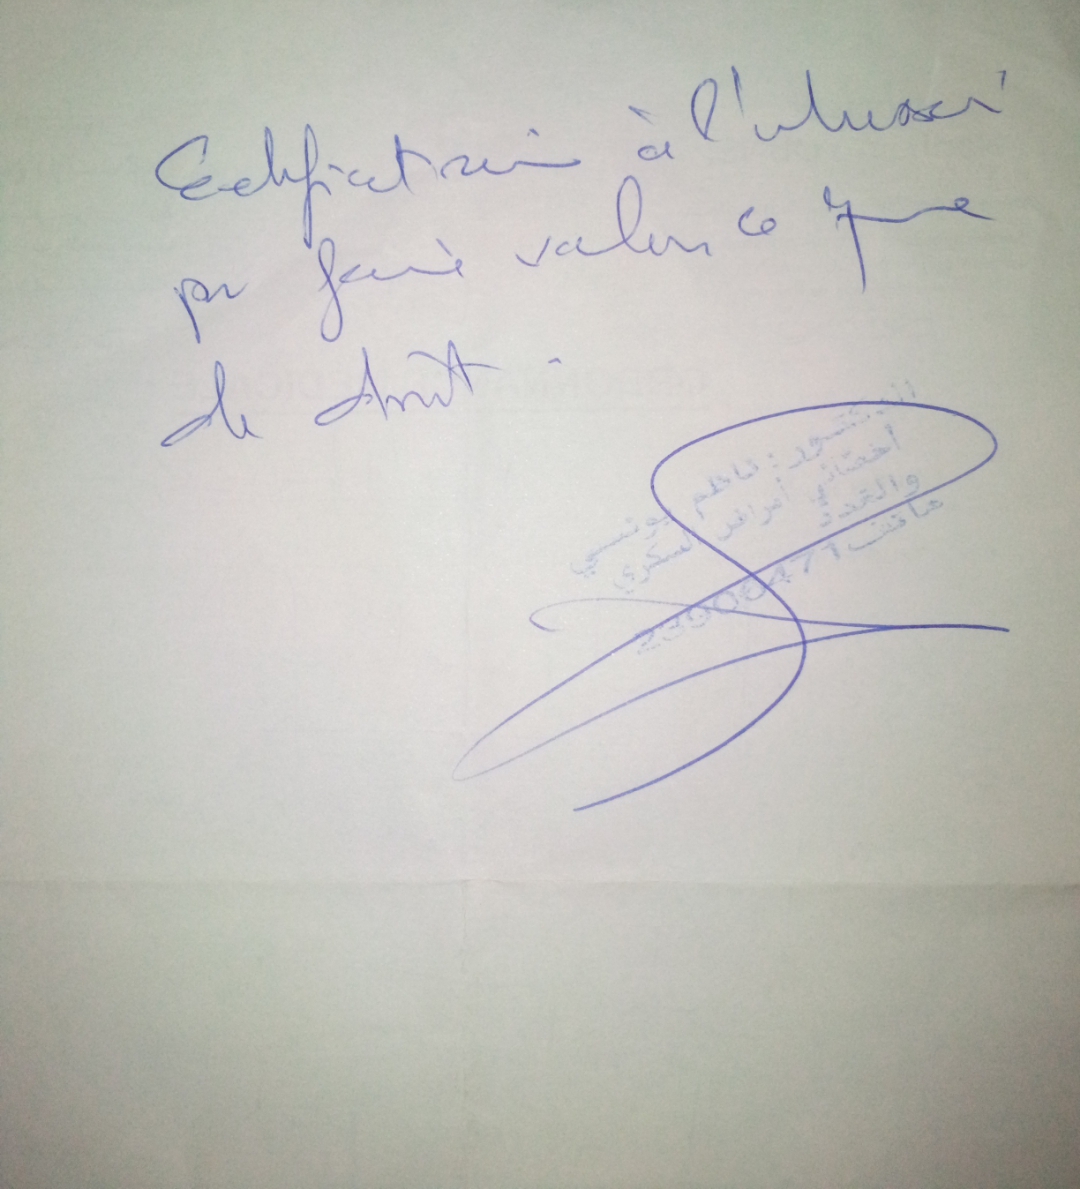 Certificat remis à l'intéressé
pr faire valoir ce que
de droit.
الدكتور: ناظم يونسي
أخصائي أمراض السكري
والغدد
هاتف 23906471